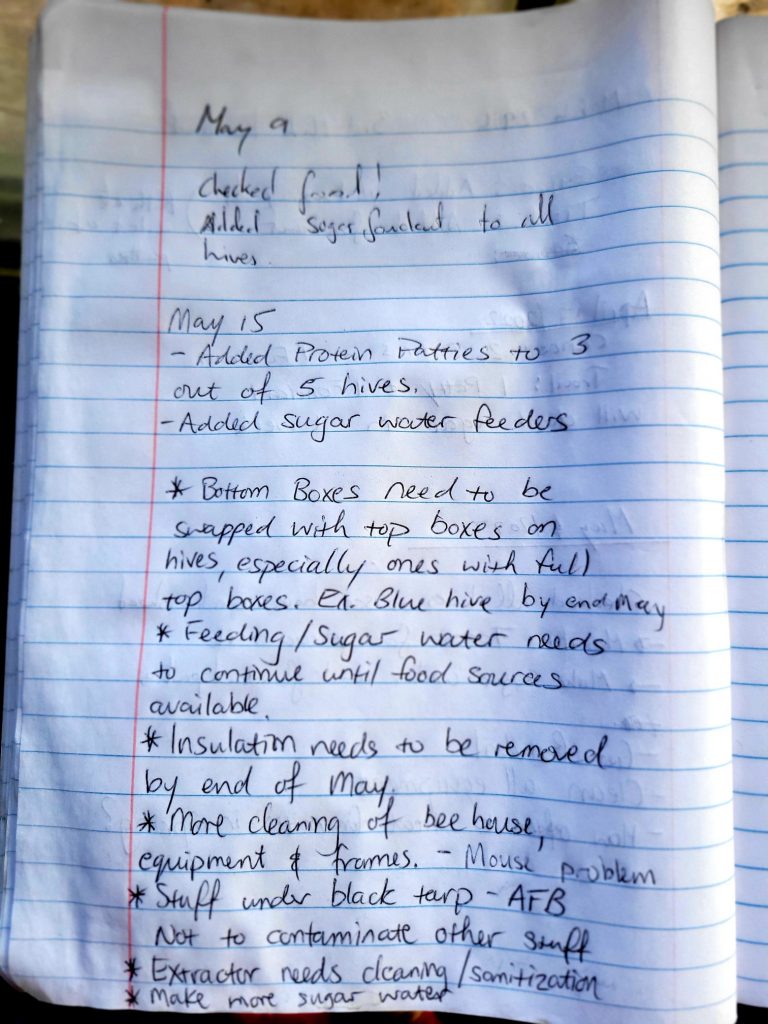 May 9
Checked food!
Added sugar fondant to all
hives.
May 15
- Added Protein Patties to 3
out of 5 hives.
- Added sugar water feeders
* Bottom Boxes need to be
swapped with top boxes on
hives, especially ones with full
top boxes. Ex. Blue hive by end May
* Feeding/Sugar water needs
to continue until food sources
available.
* Insulation needs to be removed
by end of May.
* More cleaning of bee house,
equipment & frames. - Mouse problem
* Stuff under black tarp - AFB
Not to contaminate other stuff
* Extractor needs cleaning/sanitization
* Make more sugar water